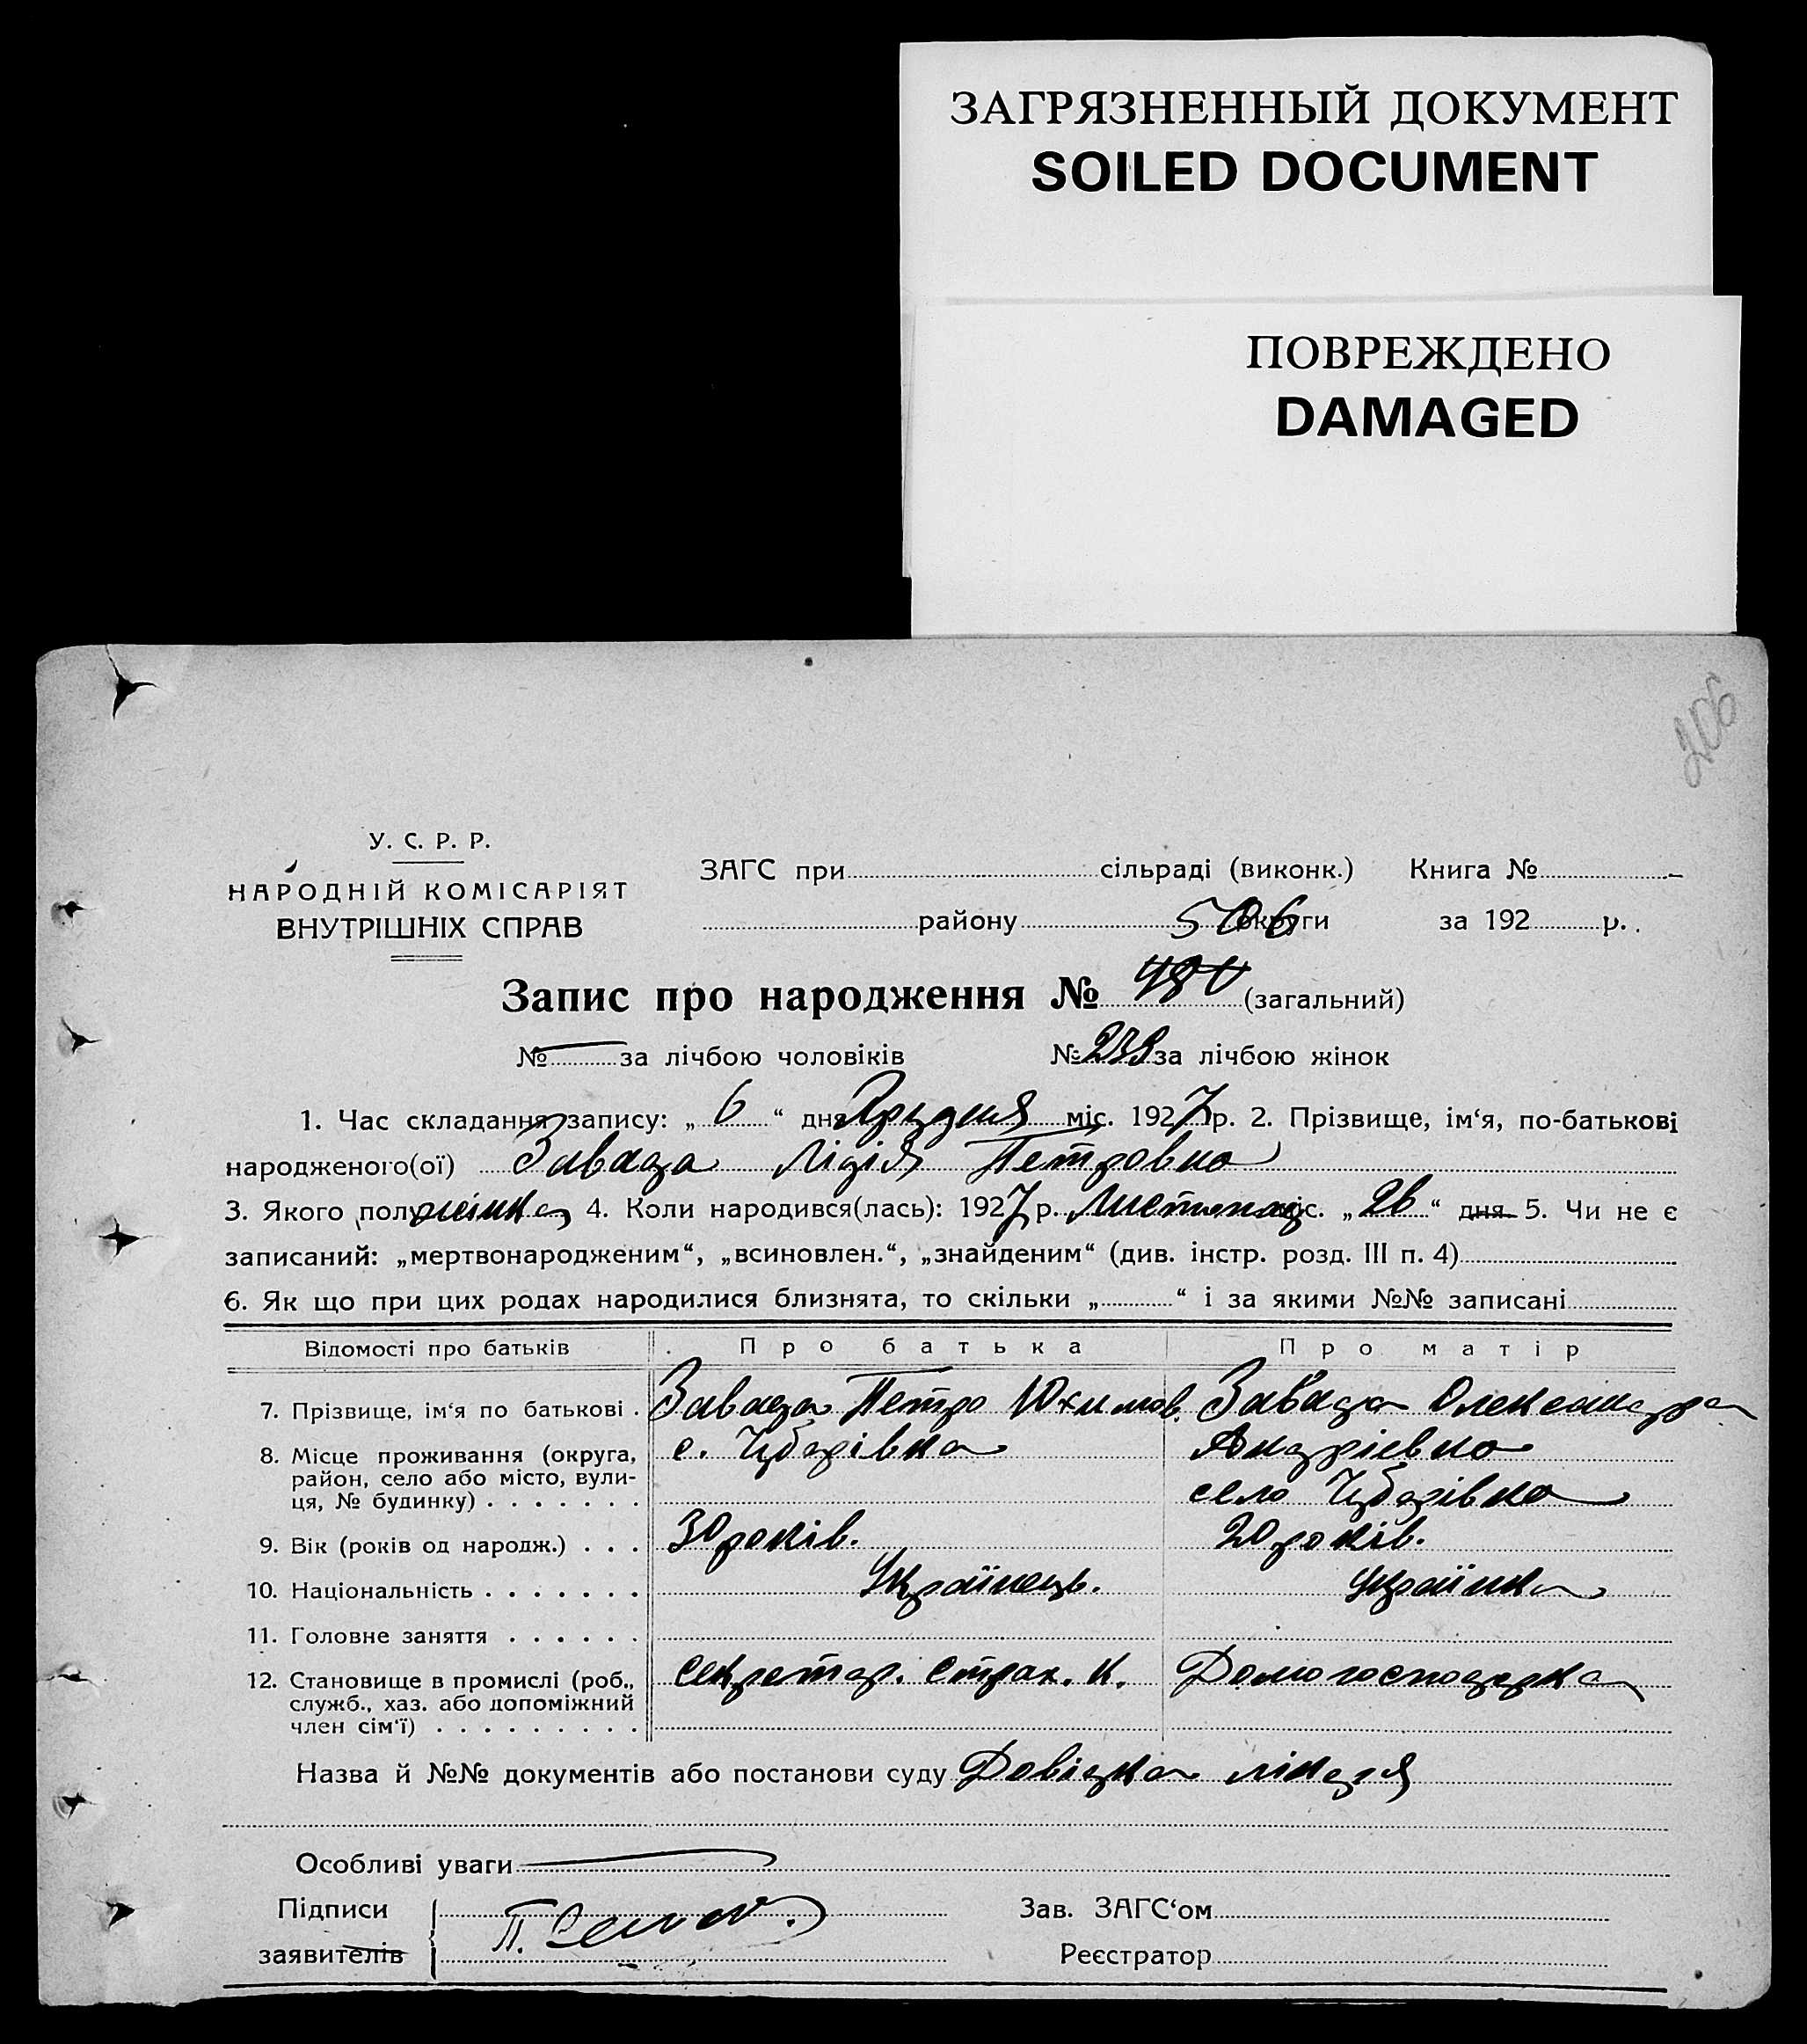 ЗАГРЯЗНЕННЫЙ ДОКУМЕНТ
SOILED DOCUMENT
ПОВРЕЖДЕНО
DAMAGED
206
У. С. Р. Р.
НАРОДНІЙ КОМІСАРІЯТ
ВНУТРІШНІХ СПРАВ
ЗАГС при сільраді (виконк.) Книга №
району округи за 192 р.
506
Запис про народження № 480 (загальний)
№ — за лічбою чоловіків № 239 за лічбою жінок
1. Час складання запису: „ 6 “ дня Грудня міс. 1927 р. 2. Прізвище, ім‘я, по-батькові
народженого(ої) Завада Лідія Петровна
3. Якого полу жінка 4. Коли народився(лась): 1927 р. Листопад міс. „ 26 “ дня 5. Чи не є
записаний: „мертвонародженим“, „всиновлен.“, „знайденим“ (див. інстр. розд. III п. 4)
6. Як що при цих родах народилися близнята, то скільки „ “ і за якими №№ записані
Відомості про батьків Про батька Про матір
7. Прізвище, ім‘я по батькові . Завада Петро Юхимов. Завада Олександра
8. Місце проживання (округа, с. Чубарівка Андрієвна
район, село або місто, вули-
ця, № будинку) . . . . . . . село Чубарівка
9. Вік (років од народж.) . . . 30 років. 20 років.
10. Національність . . . . . . . Українець. Українка
11. Головне заняття . . . . . .
12. Становище в промислі (роб., секретар. страх. к. Домогосподарка
служб., хаз. або допоміжний
член сім‘ї) . . . . . . . . .
Назва й №№ документів або постанови суду Довідка лікаря
Особливі уваги —
Підписи Зав. ЗАГС‘ом
заявителів П. Реєстратор